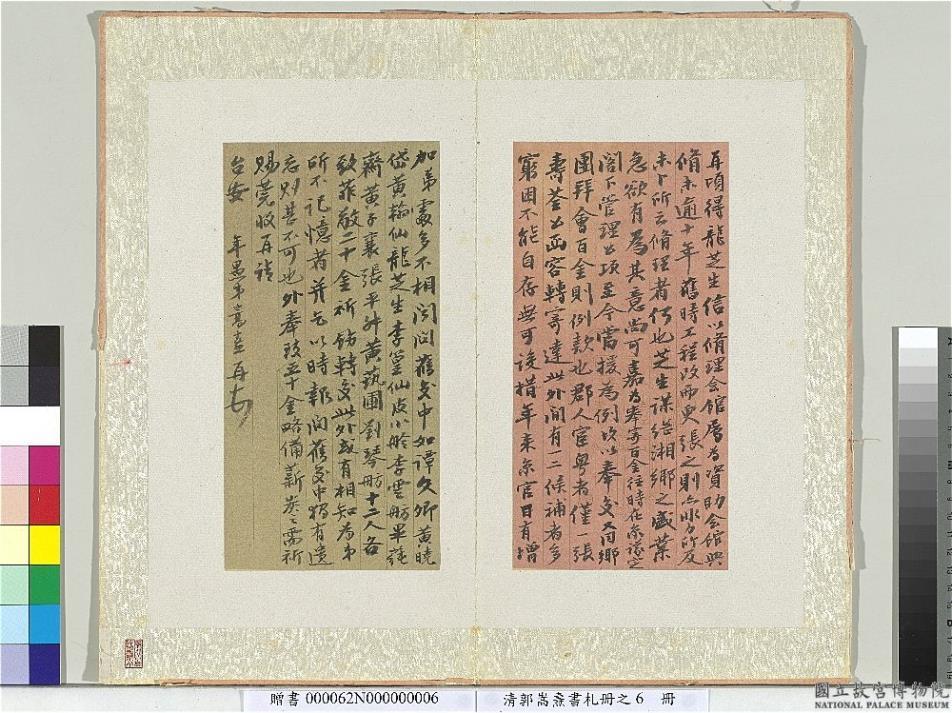 再頃得龍芝生信以脩理會館屬為資助會館與
脩未逾十年舊時工程改而更張之則亦水力所及
未卜所云脩理者何也芝生謀繼湘鄉之盛業
急欲有為其意尚可嘉為奉寄百金往時在京議定
閣下管理公項至今當援為例以奉交同鄉
團拜會百金則例款也郡人宦粵者僅一張
壽荃公函容轉寄達此外間有一二候補者多
窮困不能自存無可設措年來京官日有增
加弟處多不相聞問舊交中如譚久卿黃曉
岱黃翰仙龍芝生李篁仙皮小舲李雲舫畢純
齋黃子襄張平舟黃蓺圃劉琴舫十二人各
致菲敬二十金祈飭轉交此外或有相知為弟
所不記憶者并乞以時報聞舊交中猶有遺
忘則甚不可也外奉致五十金略備薪炭之需祈
賜莞收再請
台安 年愚弟嵩燾再頓
贈書 000062N000000006 清郭嵩燾書札冊之 6 冊
國立故宮博物院
NATIONAL PALACE MUSEUM